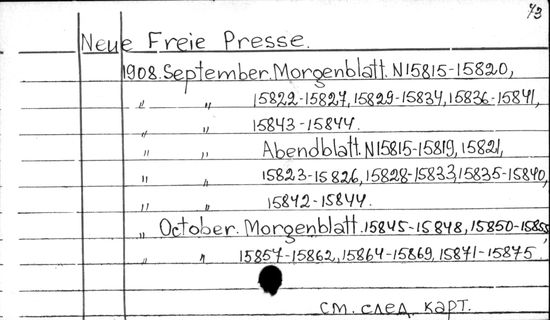 73
Neue Freie Presse.
1908. September. Morgenblatt. N15815-15820,
" " 15822-15827, 15829-15834, 15836-15841,
" " 15843-15844.
" " Abendblatt. N15815-15819, 15821,
" " 15823-15826, 15828-15833, 15835-15840,
" " 15842-15844.
" October. Morgenblatt. 15845-15848, 15850-15855,
" " 15857-15862, 15864-15869, 15871-15875.
см. след. карт.